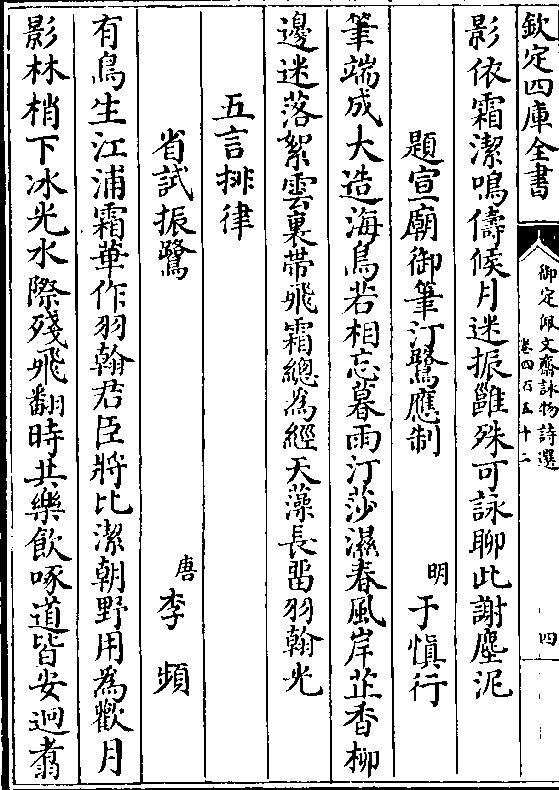 欽定四庫全書
御定佩文齋詠物詩選
卷四百五十二
四
影依霜潔鳴儔候月迷振雝殊可詠聊此謝塵泥
題宣廟御筆汀鷺應制
明于慎行
筆端成大造海鳥若相忘暮雨汀莎濕春風岸芷香柳
邊迷落絮雲裏帶飛霜總為經天藻長留羽翰光
五言排律
省試振鷺
唐李頻
有鳥生江浦霜華作羽翰君臣將比潔朝野用為歡月
影林梢下冰光水際殘飛翻時共樂飲啄道皆安迥翥